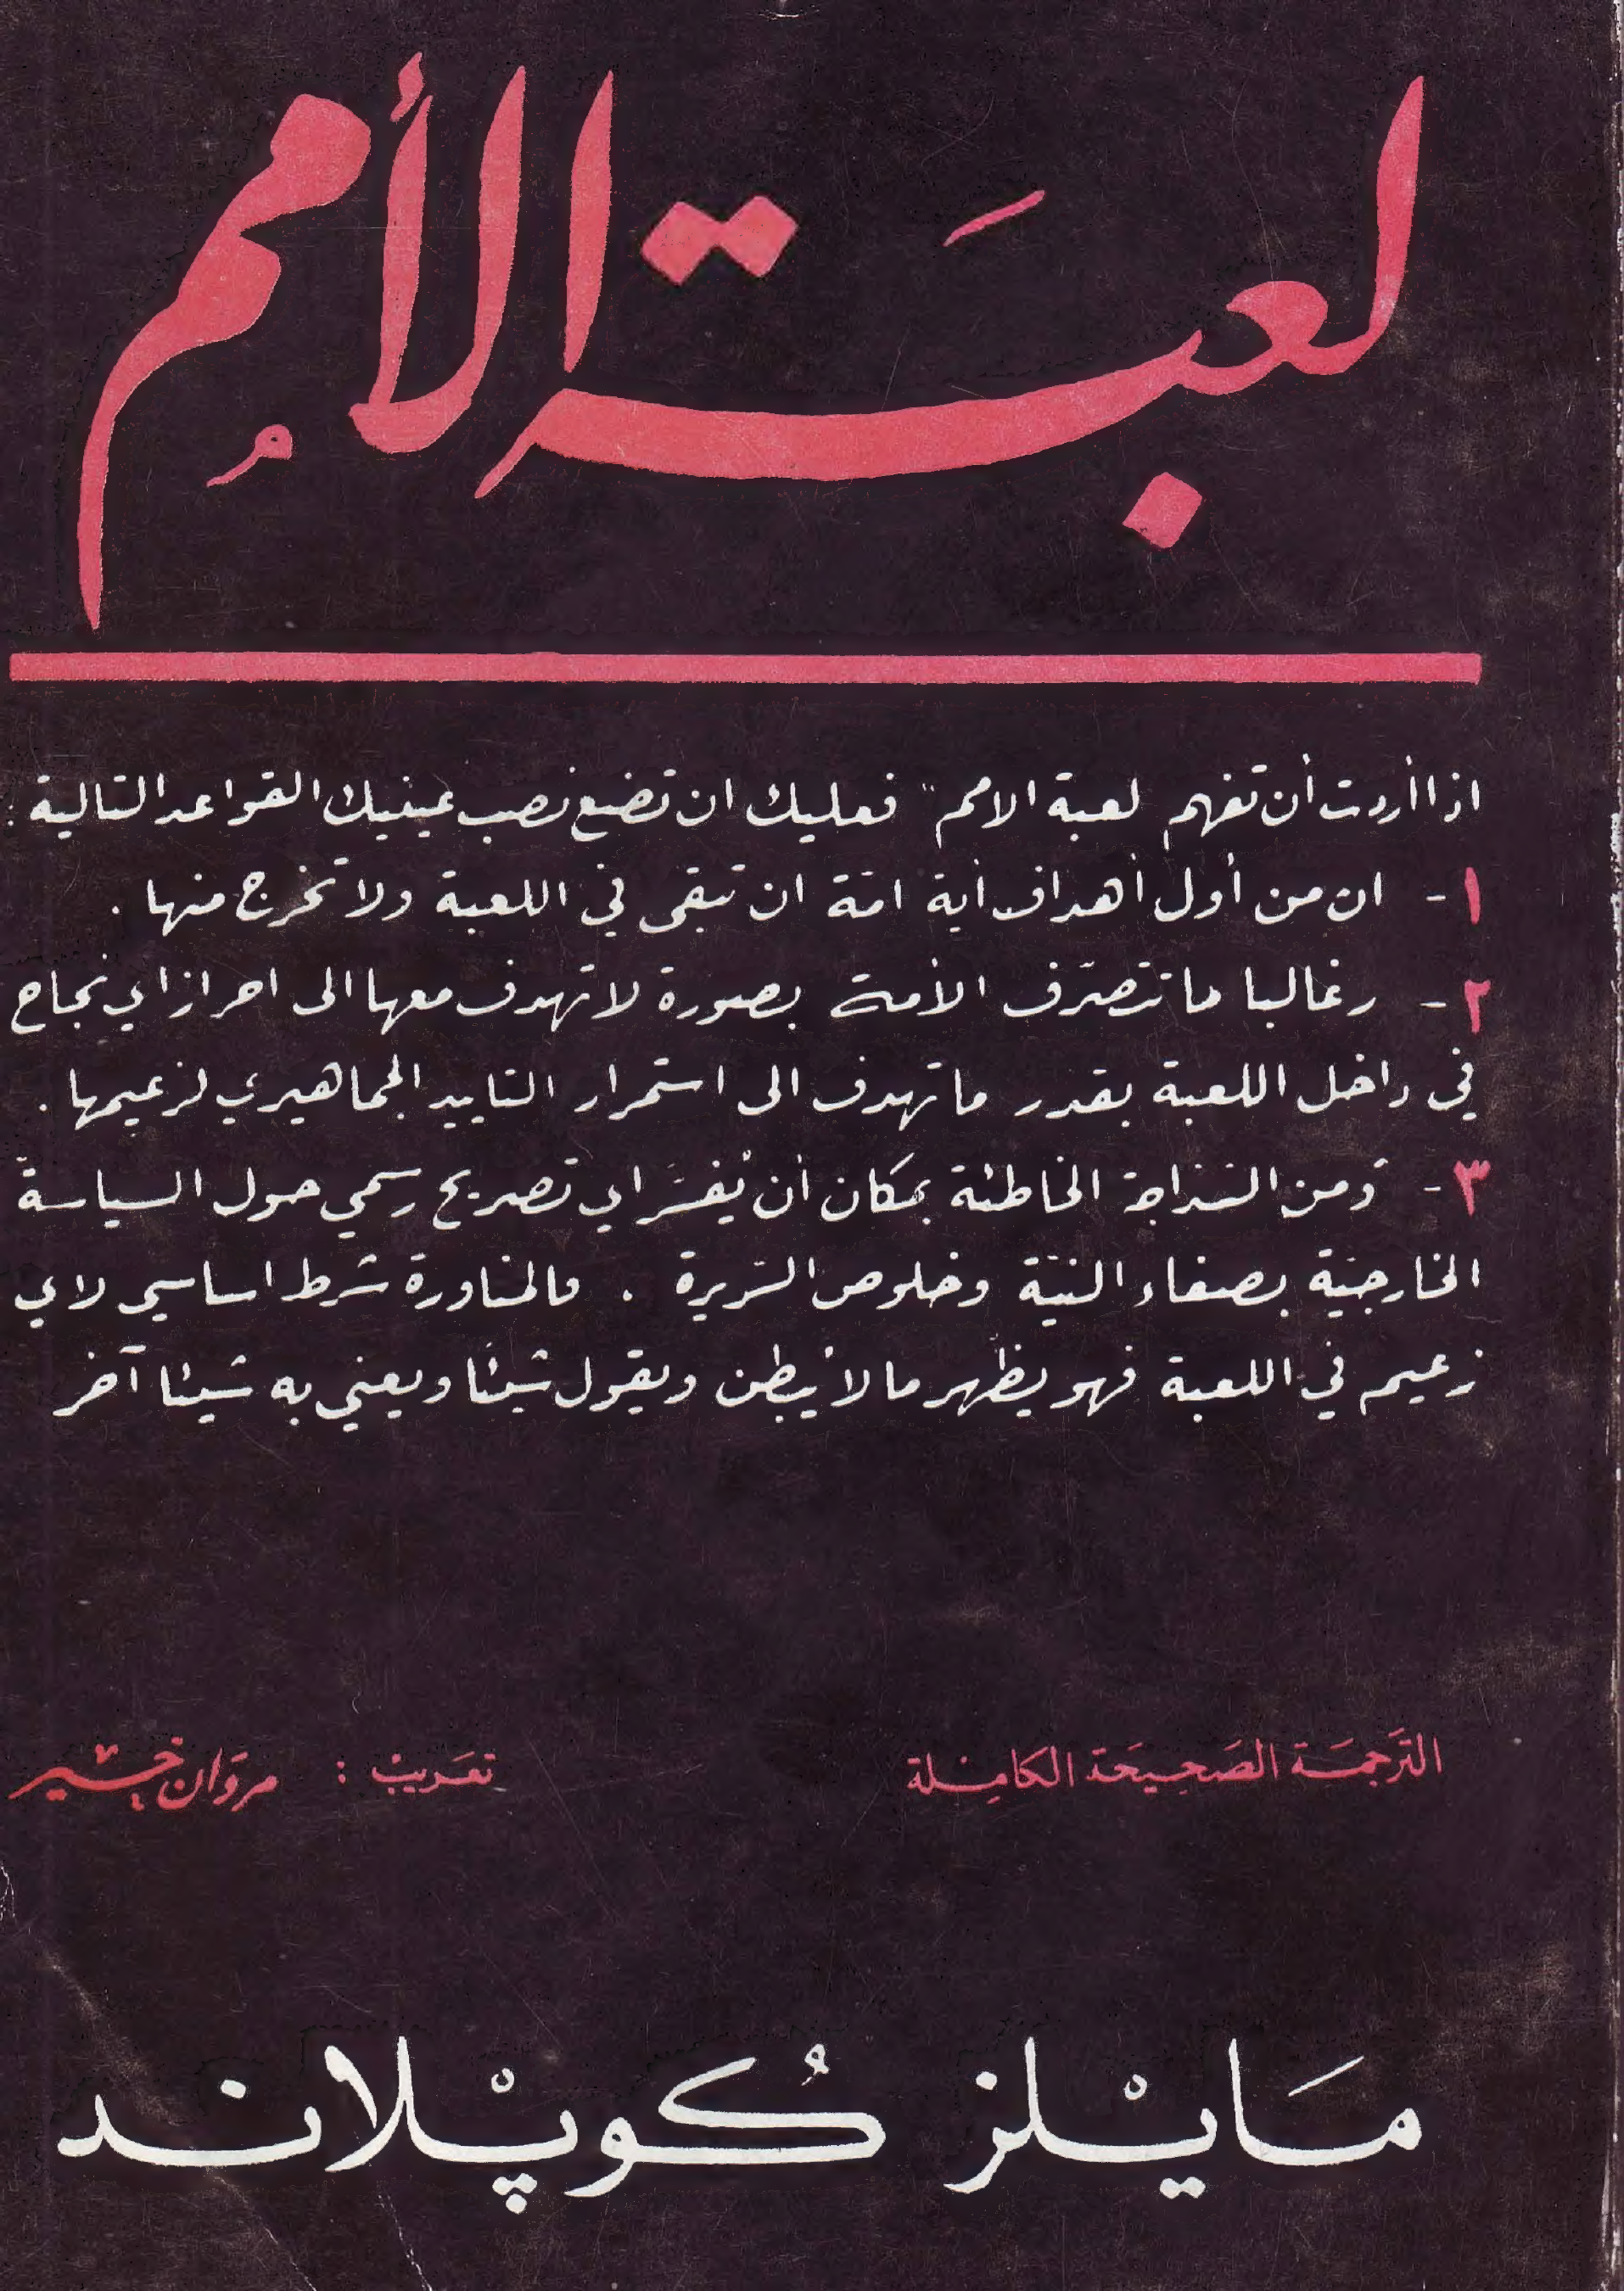 لعبَة الأممُ
اذا أردت أن تفهم لعبة الامم" فعليك ان تضع نصب عينيك القواعد التالية :
١ - ان من أول أهداف أية امة ان تبقى في اللعبة ولا تخرج منها .
٢ - وغالبا ما تتصرّف الأمة بصورة لا تهدف معها الى احراز اي نجاح
في داخل اللعبة بقدر ما تهدف الى استمرار التاييد الجماهيري لزعيمها .
٣ - ومن السّذاجة الخاطئة بمكان أن يُفسَّر اي تصريح رسمي حول السياسة
الخارجيّة بصفاء النيّة وخلوص السّريرة . فالمناورة شرط اساسي لاي
زعيم في اللعبة فهو يظهر ما لا يُبطن ويقول شيئًا ويعني به شيئا آخر
التَرجمَة الصَحِيحَة الكامِلة
تعَريبْ : مروَان خير
مَايْلز كُوپْلاند